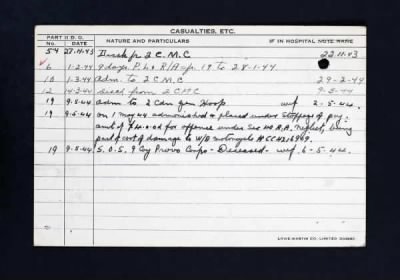 CASUALTIES, ETC.
PART II D. O.
No. DATE NATURE AND PARTICULARS IF IN HOSPITAL NOTE WARD
54 27.11.43 Disch fr 2 C.M.C 22.11.43
6 1-2-44 9 days P.L. & R/A fr 19 to 28-1-44.
10 1-3-44 Adm. to 2 C.M.C 29-2-44
12 14-3-44 Disch from 2 CMC 9-3-44
19 9-5-44 adm to 2 Cdn Gen Hosp. wef 2-5-44
19 9-5-44 on 1 May 44 admonished & placed under stoppages of pay:
amt of for offense under Sec 40 A.A. Neglect, being
part of cost of damage to W/D motorcycle
19 9-5-44 S.O.S. 9 Coy Provo Corps - Deceased - wef 6-5-44.
LOWE-MARTIN CO. LIMITED